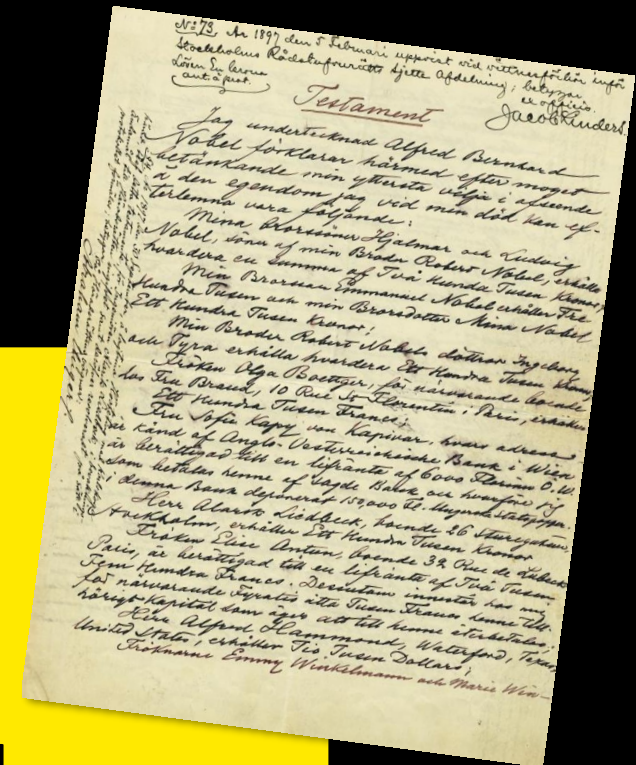 No 73. År 1897 den 5 Februari uppvist vid vittnesförhör inför
Stockholms Rådstufvurätts sjette Afdelning; betygar
Lösen En krona ex officio.
Jacob Linders.
Testament
Jag undertecknad Alfred Bernhard
Nobel förklarar härmed efter moget
betänkande min yttersta vilja i afseende
å den egendom jag vid min död kan ef-
terlemna vara följande:
Mina brorsöner Hjalmar och Ludvig
Nobel, söner af min Broder Robert Nobel, erhålla
hvardera en summa af Två Hundra Tusen Kronor;
Min Brorsson Emmanuel Nobel erhåller Tre
Hundra Tusen och min Brorsdotter Mina Nobel
Ett Hundra Tusen Kronor;
Min Broder Robert Nobels döttrar Ingeborg
och Tyra erhålla hvardera Ett Hundra Tusen Kronor;
Fröken Olga Boettger, för närvarande boende
hos Fru Brand, 10 Rue St Florentin i Paris, erhåller
Ett Hundra Tusen Francs;
Fru Sofie Kapy von Kapivar, hvars adress
är känd af Anglo-Oesterreichische Bank i Wien
är berättigad till en lifränta af 6000 Florins Ö.W.
som betalas henne af sagde Bank och hvarföre jag
i denna Bank deponerat 150,000 Fl. Ungerska statspapper.
Herr Alarik Liedbeck, boende 26 Sturegatan,
Stockholm, erhåller Ett Hundra Tusen Kronor
Fröken Elise Antun, boende 32 Rue de Lubeck
Paris, är berättigad till en lifränta af Två Tusen
Fem Hundra Francs. Dessutom innestår hos mig
för närvarande Fyratio åtta Tusen Francs henne till-
hörigt Kapital som äger att till henne återbetalas;
Herr Alfred Hammond, Waterford, Texas,
United States, erhåller Tio Tusen Dollars;
Fröknarne Emmy Winkelmann och Marie Win-